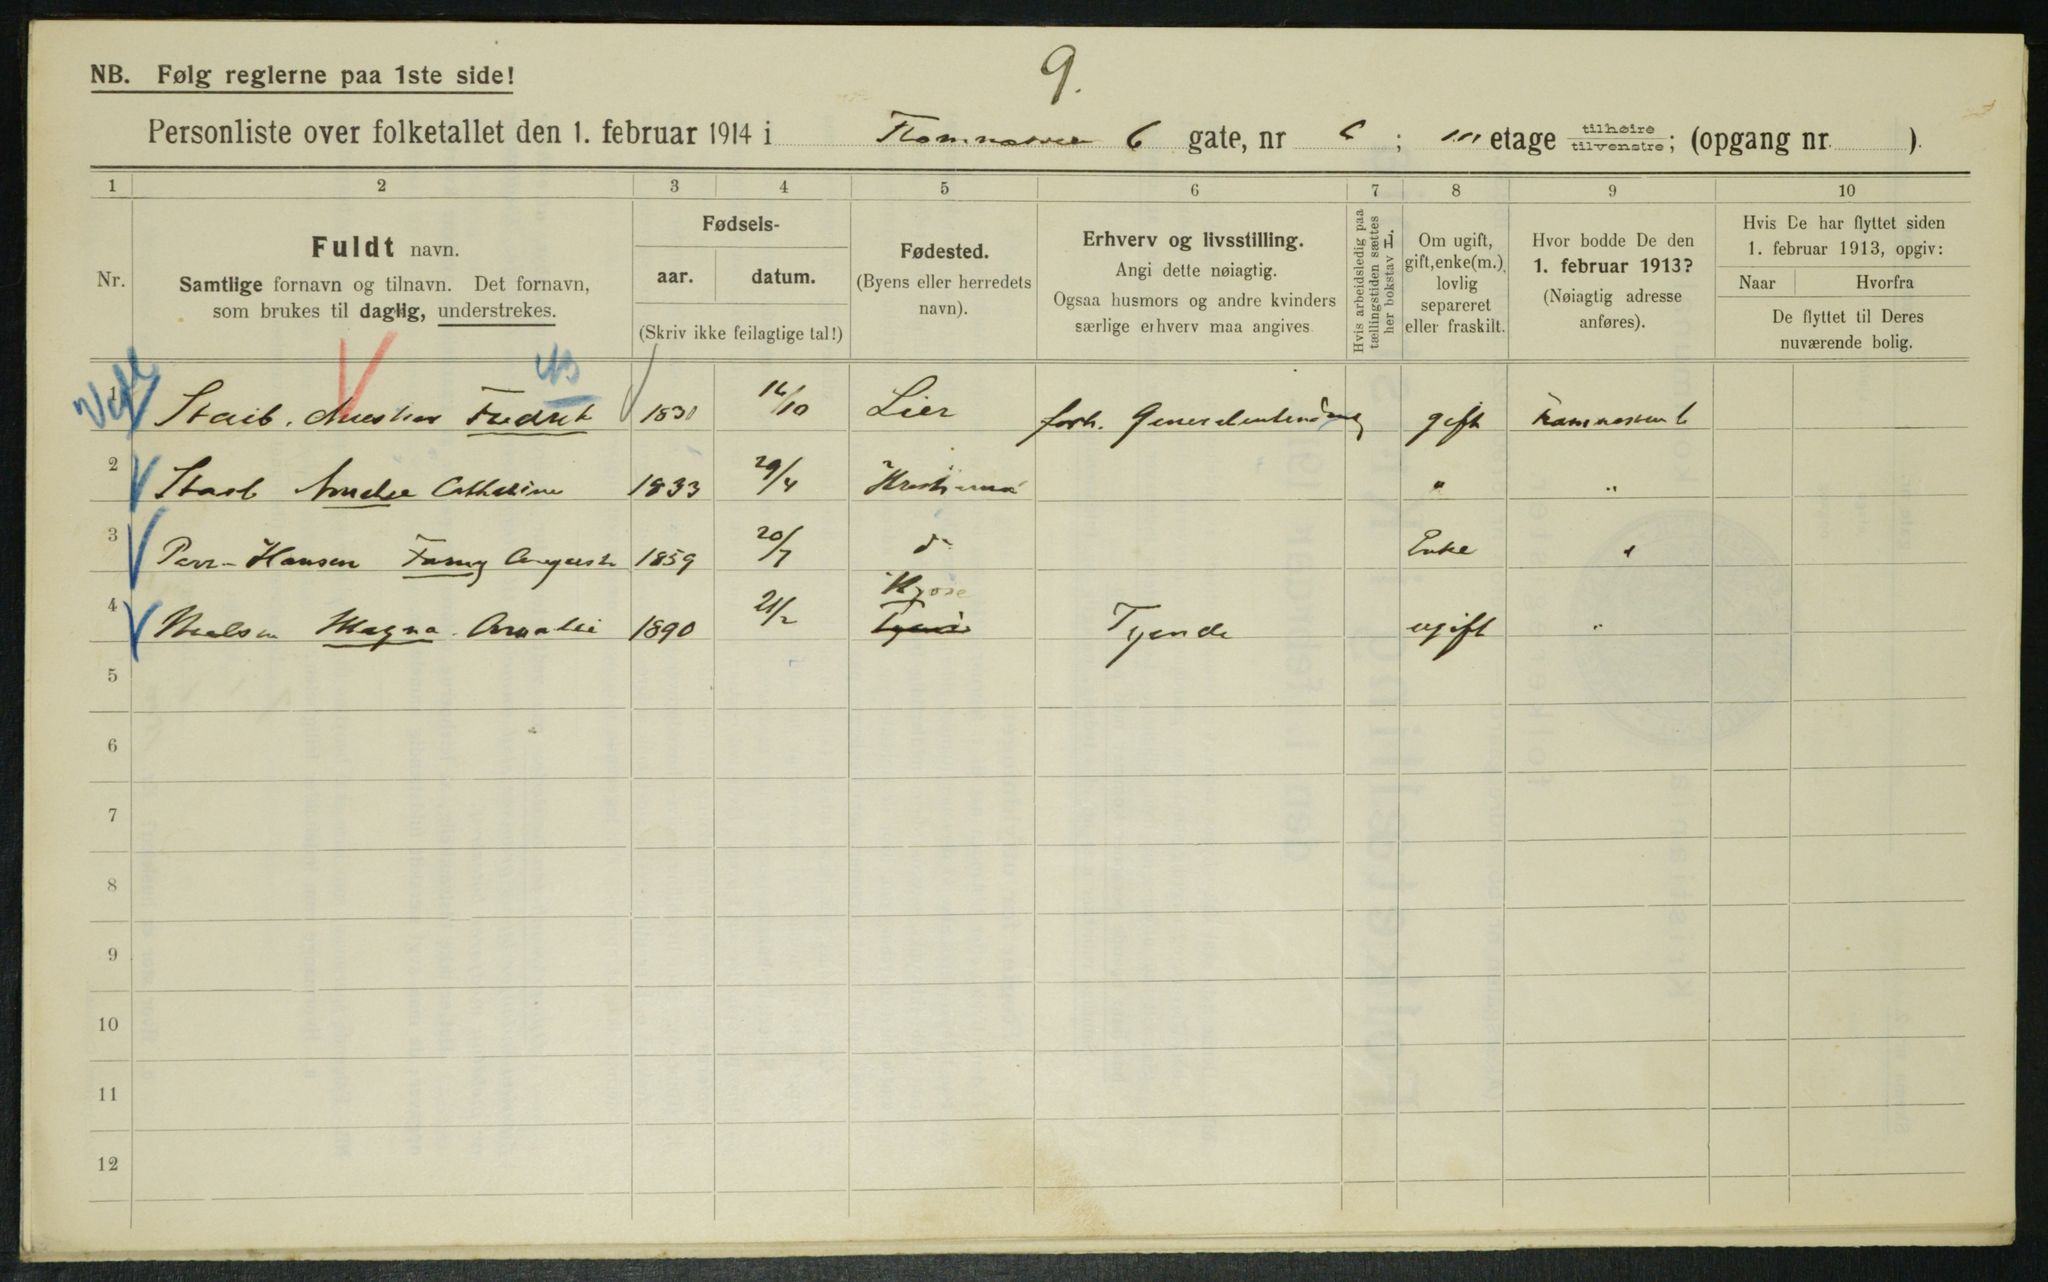 9.
NB. Følg reglerne paa 1ste side!
Personliste over folketallet den 1. februar 1914 i 6 gate, nr 6 ; III etage tilhøire tilvenstre; (opgang nr. ).
1 2 3 4 5 6 7 8 9 10
Nr.
Fuldt navn.
Samtlige fornavn og tilnavn. Det fornavn,
som brukes til daglig, understrekes.
Fødsels-
aar. datum.
(Skriv ikke feilagtige tal!)
Fødested.
(Byens eller herredets
navn).
Erhverv og livsstilling.
Angi dette nøiagtig.
Ogsaa husmors og andre kvinders
særlige erhverv maa angives.
Hvis arbeidsledig paa
tællingstiden sættes
her bokstav L.
Om ugift,
gift, enke(m.),
lovlig
separeret
eller fraskilt.
Hvor bodde De den
1. februar 1913?
(Nøiagtig adresse
anføres).
Hvis De har flyttet siden
1. februar 1913, opgiv:
Naar Hvorfra
De flyttet til Deres
nuværende bolig.
1 Staib. Fredrik 1830 16/10 Lier forh. gift
2 Staib Catherine 1833 29/4 Kristiania " "
3 Hansen Fanny Augusta 1859 20/7 do Enke "
4 Nielsen Magna Amalie 1890 21/2 Tyende ugift "
5
6
7
8
9
10
11
12